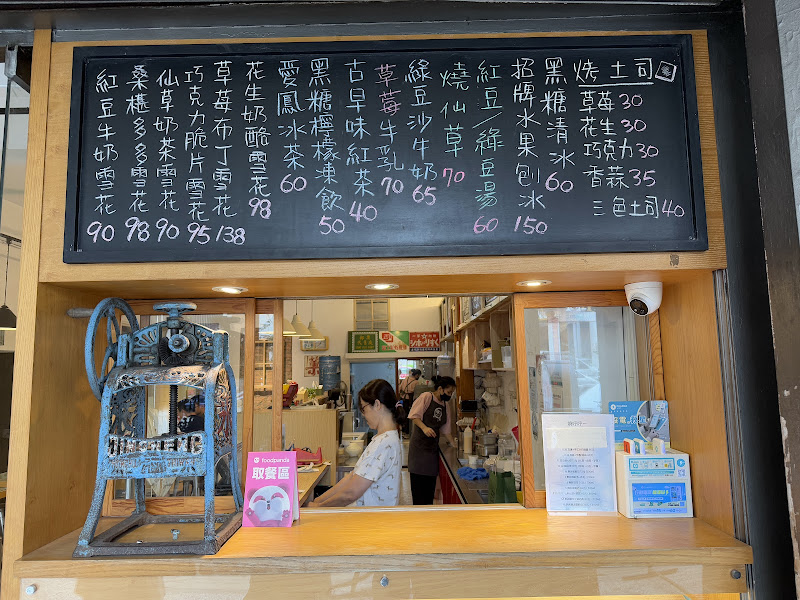 烤土司
草莓30
花生30
巧克力30
香蒜35
三色土司40
黑糖清冰60
招牌水果刨冰150
紅豆/綠豆湯60
燒仙草70
綠豆沙牛奶65
草莓牛乳70
古早味紅茶40
黑糖檸檬凍飲50
愛鳳冰茶60
花生奶酪雪花98
草莓布丁雪花138
巧克力脆片雪花95
仙草奶茶雪花90
桑椹多多雪花98
紅豆牛奶雪花90
foodpanda
取餐區